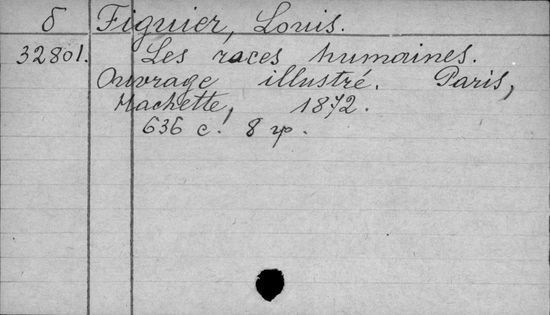 б Figuier, Louis.
32801. Les races humaines.
Ouvrage illustré. Paris,
Hachette, 1872.
636 c. 8 гр.